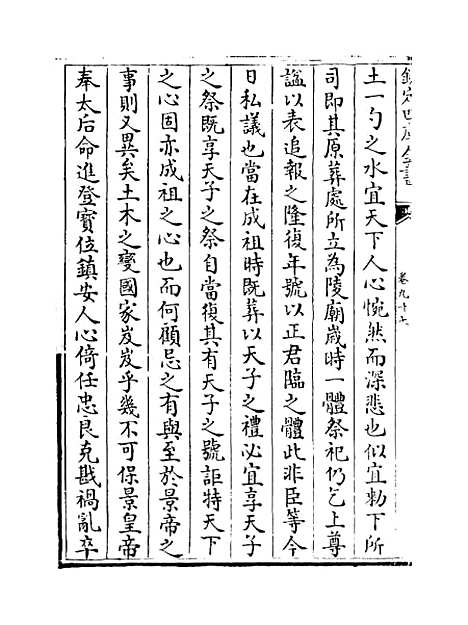 欽定四庫全書
卷九十七
土一勺之水宜天下人心惋然而深悲也似宜勅下所
司即其原葬處所立為陵廟歲時一體祭祀仍乞上尊
諡以表追報之隆復年號以正君臨之體此非臣等今
日私議也當在成祖時既葬以天子之禮必宜享天子
之祭既享天子之祭自當復其有天子之號詎特天下
之心固亦成祖之心也而何顧忌之有與至於景帝之
事則又異矣土木之變國家岌岌乎幾不可保景皇帝
奉太后命進登寳位鎮安人心倚任忠良克戡禍亂卒